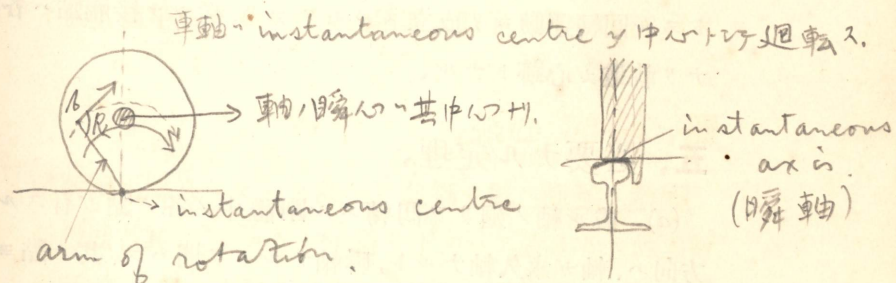 車軸ハ instantaneous centre ヲ中心トシテ廻転ス.
軸ノ瞬心ハ其中心ナリ.
R
instantaneous centre
arm of rotation.
instantaneous
axis.
(瞬軸)